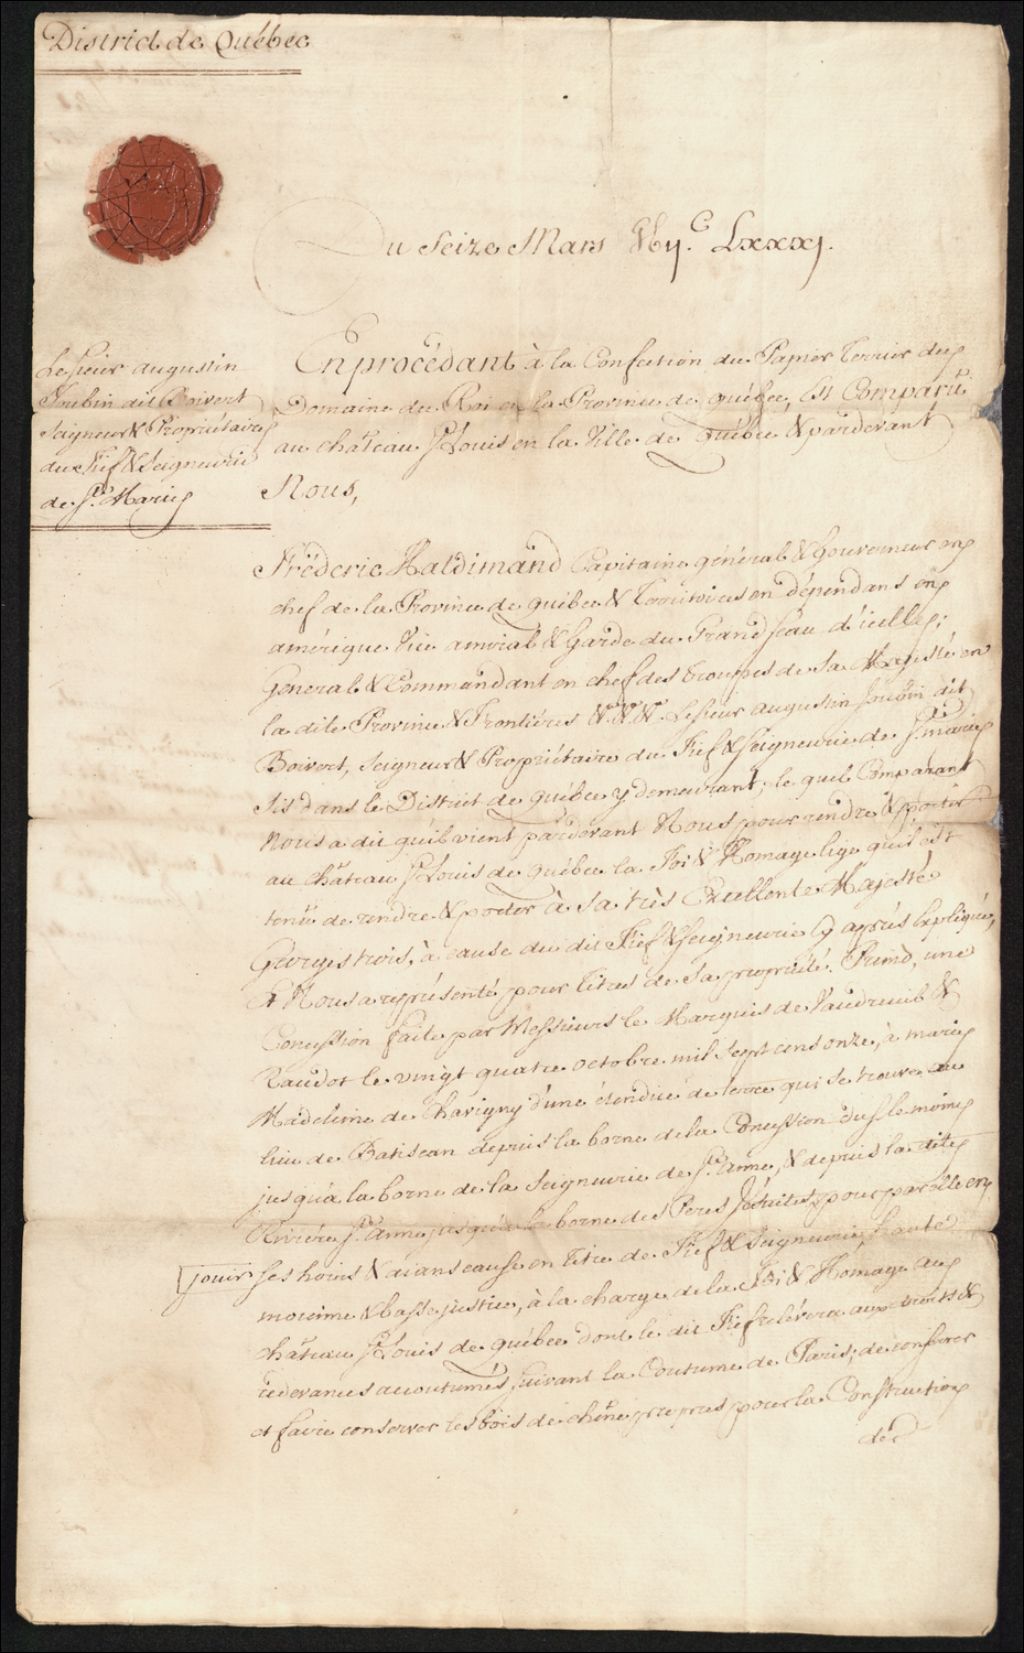 District de Québec
Du Seize Mars Mvijc. Lxxxj.
Le sieur augustin
Joubin dit Boivert
Seigneur & Propriétaire
du Fief & Seigneurie
de Ste. Marie
En procédant à la Confection du Papier Terrier du
Domaine du Roi en la Province de Québec, Est Comparû
au château St Louis en la Ville de Québec & pardevant
Nous,
Fréderic Haldimand Capitaine général & Gouverneur en
chef de la Province de Québec & Territoires en dépendans en
amérique Vice amiral & Garde du Grand Sceau d'icelle;
Général & Commandant en chef des troupes de Sa Majesté en
la dite Province & Frontiéres &.&.&. Le Sieur augustin Joubin dit
Boivert, Seigneur & Propriétaire du Fief & Seigneurie de Ste. marie
sis dans le District de Québec y demeurant; le quel Comparant
Nous a dit qu'il vient pardevant Nous pour rendre & porter
au château St Louis de Québec la Foi & Homage lige qu'il est
tenû de rendre & porter à Sa très Excellente Majesté
Georges trois, à cause du dit Fief & Seigneurie cy après Expliqué,
Et Nous a représenté pour titres de Sa propriété. Primò, une
Concession faite par Messieurs le Marquis de Vaudreuil &
Raudot le vingt quatre octobre mil Sept cens onze, à marie
Madeleine de Chavigny d'une étendüe de terre qui se trouve au
lieu de Batiscan depuis la borne de la Concession du Sr. le moine
jusqu'à la borne de la Seigneurie de Ste. Anne, & depuis la dite
Riviére Ste. Anne jusqu'à la borne des Peres Jésuites, pour par elle en
jouir ses hoirs & aians cause en titre de Fief & Seigneurie, haute
moienne & basse justice, à la charge de la Foi & Homage au
château St Louis de Québec dont le dit Fief relévera aux droits &
redevances acoutumés suivant la Coutume de Paris; de conserver
et faire conserver les bois de chêne propres pour la Construction
des